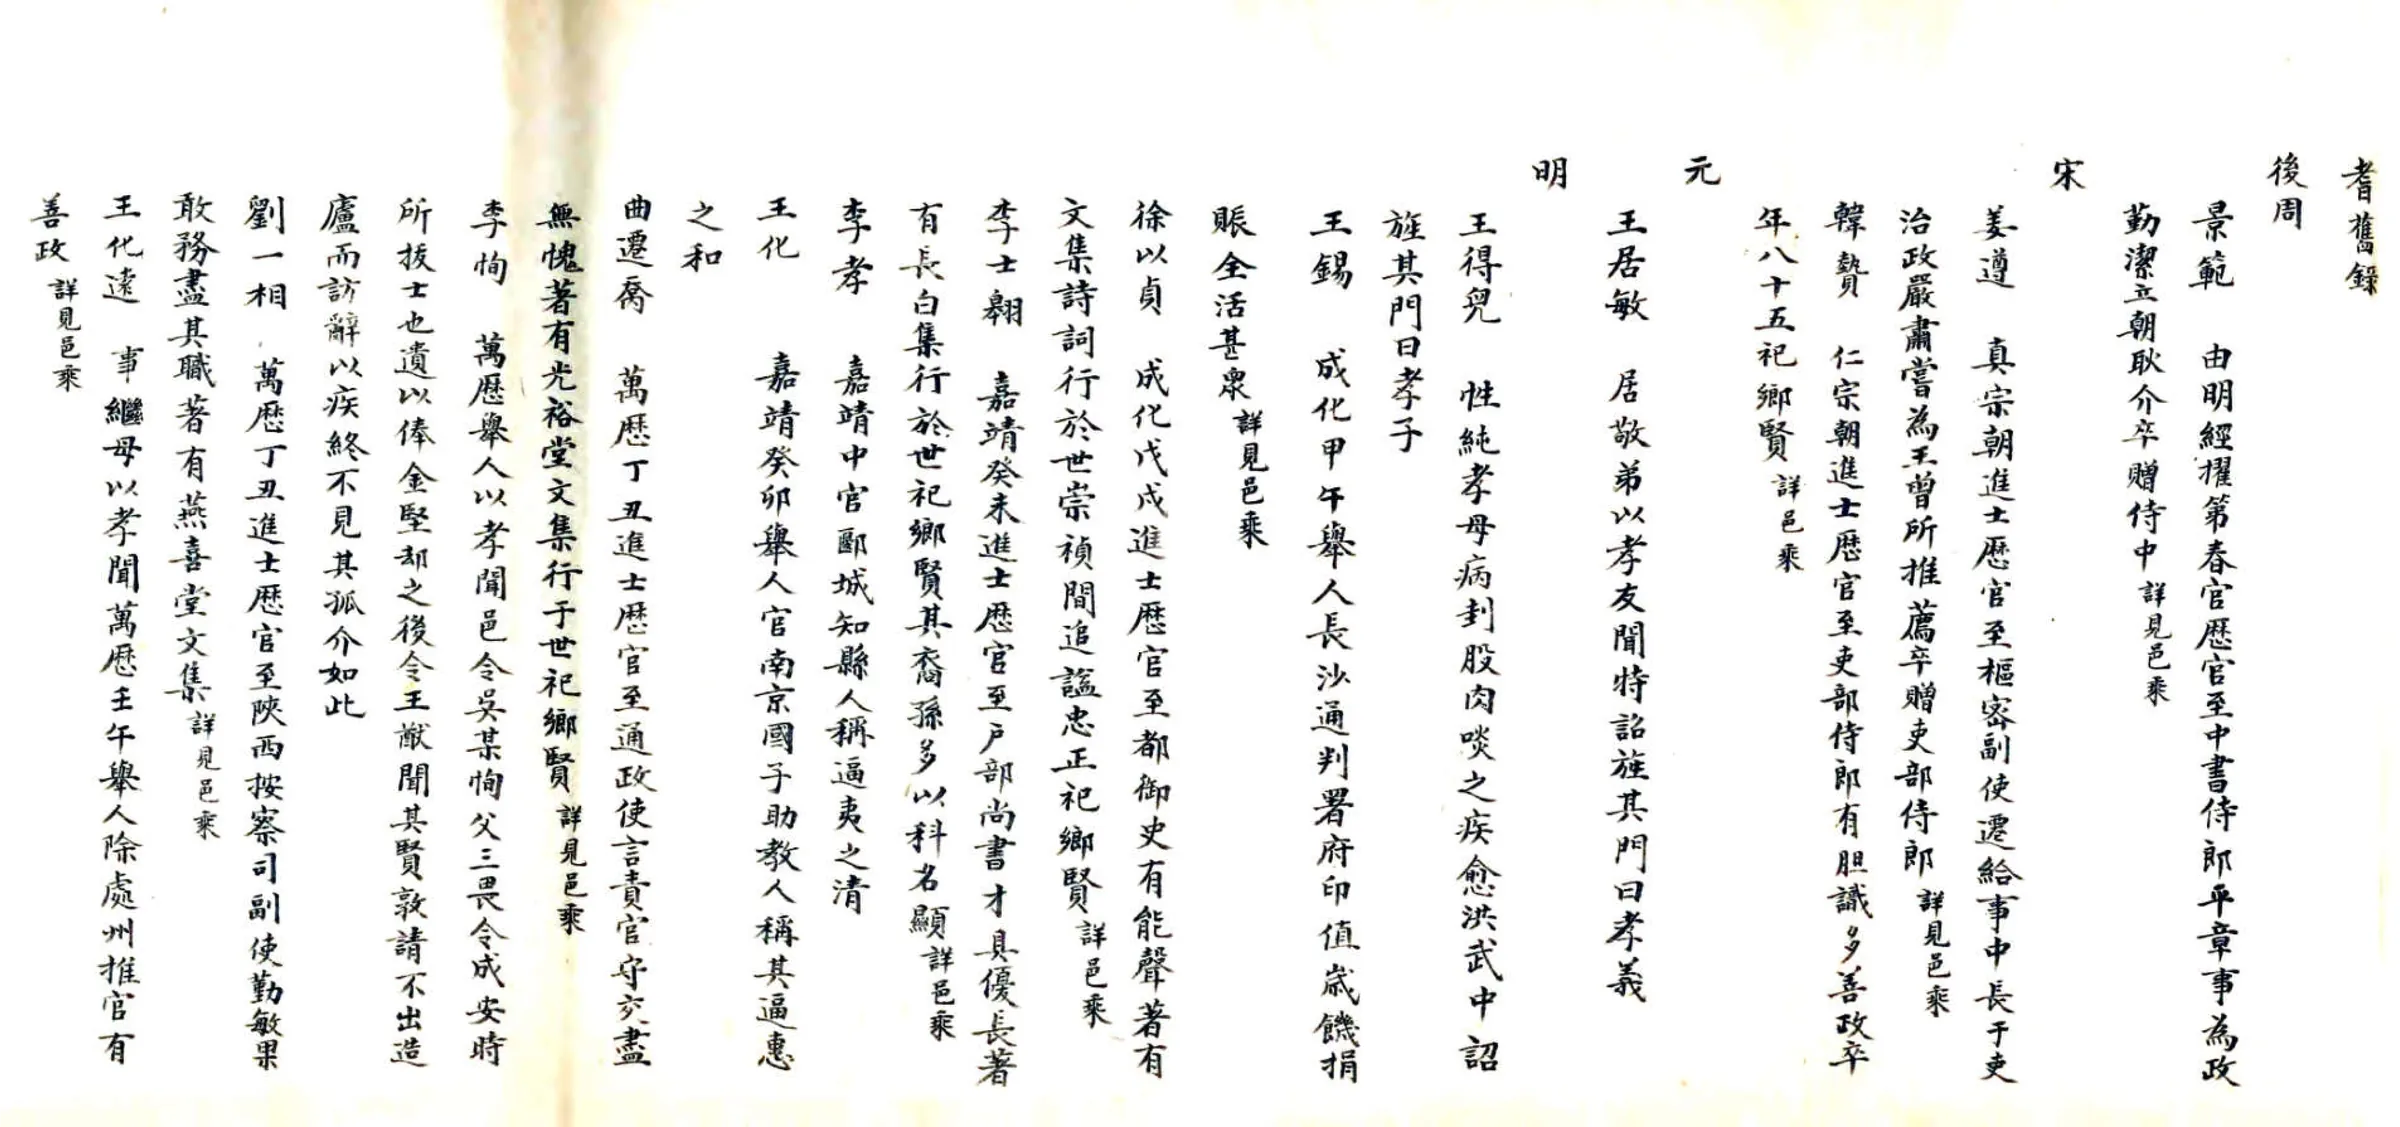 耆舊錄
後周
景範　由明經擢第春官歷官至中書侍郎平章事為政
勤潔立朝耿介卒贈侍中詳見邑乘
宋
姜遵　真宗朝進士歷官至樞密副使遷給事中長于吏
治政嚴肅嘗為王曾所推薦卒贈吏部侍郎詳見邑乘
韓贄　仁宗朝進士歷官至吏部侍郎有胆識多善政卒
年八十五祀鄉賢詳邑乘
元
王居敏　居敬弟以孝友聞特詔旌其門曰孝義
明
王得兒　性純孝母病刲股肉啖之疾愈洪武中詔
旌其門曰孝子
王錫　成化甲午舉人長沙通判署府印值歲饑捐
賑全活甚眾詳見邑乘
徐以貞　成化戊戌進士歷官至都御史有能聲著有
文集詩詞行於世崇禎間追謚忠正祀鄉賢詳邑乘
李士翱　嘉靖癸未進士歷官至戶部尚書才具優長著
有長白集行於世祀鄉賢其裔孫多以科名顯詳邑乘
李孝　嘉靖中官郾城知縣人稱逼夷之清
王化　嘉靖癸卯舉人官南京國子助教人稱其逼惠
之和
曲遷喬　萬歷丁丑進士歷官至通政使言責官守交盡
無愧著有光裕堂文集行于世祀鄉賢詳見邑乘
李恂　萬歷舉人以孝聞邑令吳某恂父三畏令成安時
所拔士也遺以俸金堅却之後令王猷聞其賢敦請不出造
廬而訪辭以疾終不見其孤介如此
劉一相　萬歷丁丑進士歷官至陝西按察司副使勤敏果
敢務盡其職著有燕喜堂文集詳見邑乘
王化遠　事繼母以孝聞萬歷壬午舉人除處州推官有
善政詳見邑乘